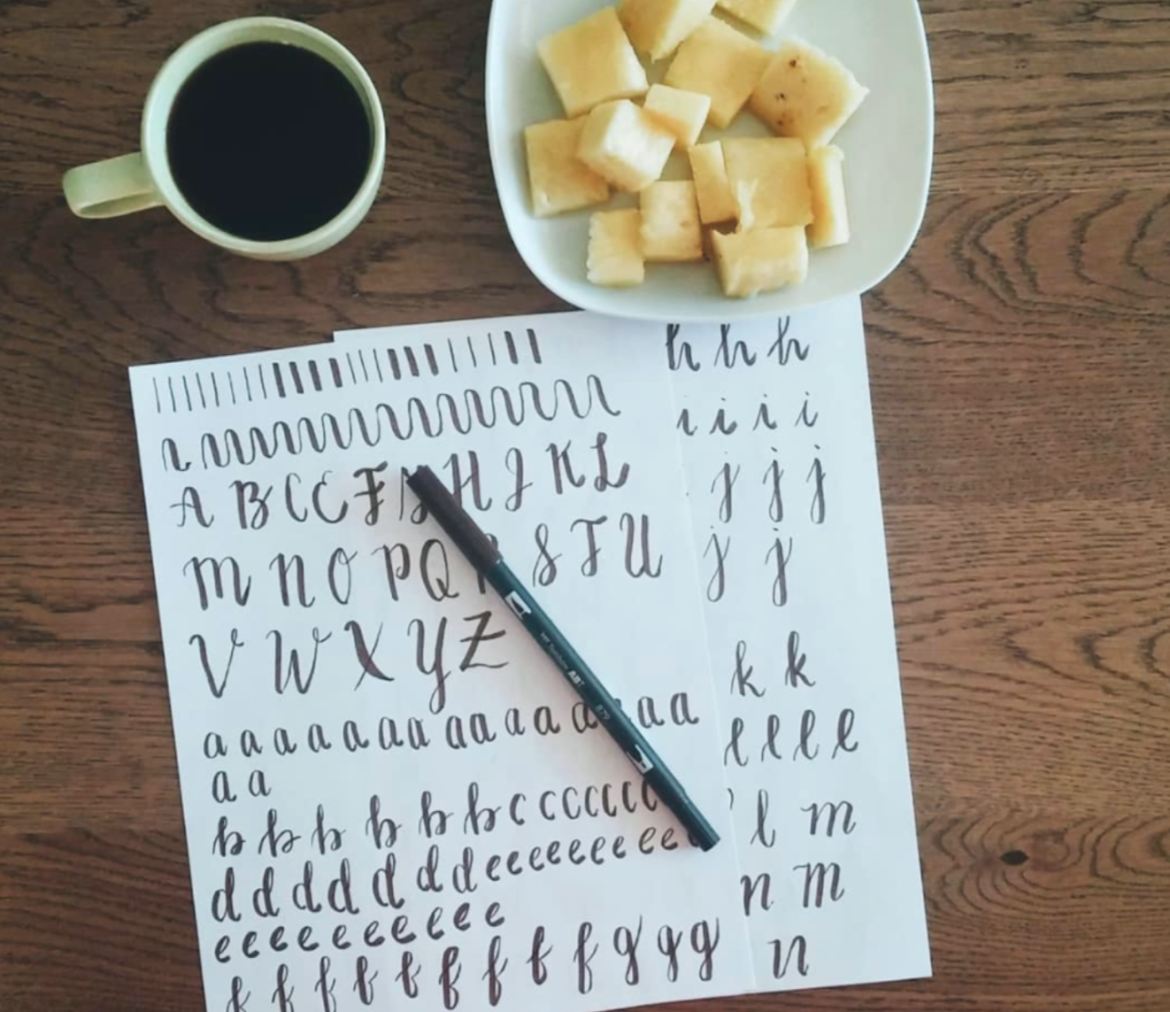 A B C C F H J K L
M N O P Q R S T U
V W X Y Z
a a a a a a a a a a a a a a a
a a
b b b b b b c c c c c c c
d d d d d d d e e e e e e e e e
e e e e e e e e e e
f f f f f f f f f g g g
h h h
i i i i
j j j
j j
k k
l l l l
l m
n m
n
ABT
879